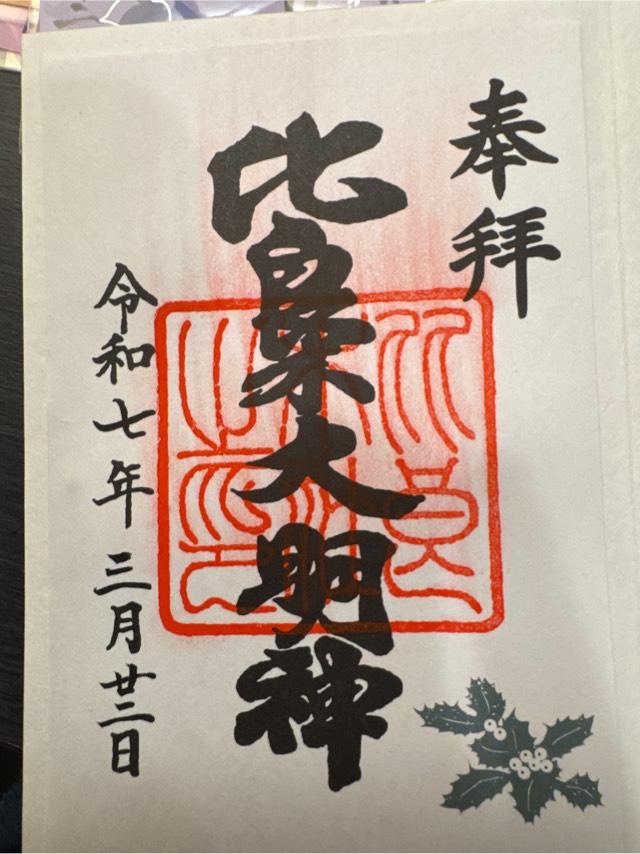 奉拝
比良木大明神
令和七年三月廿二日